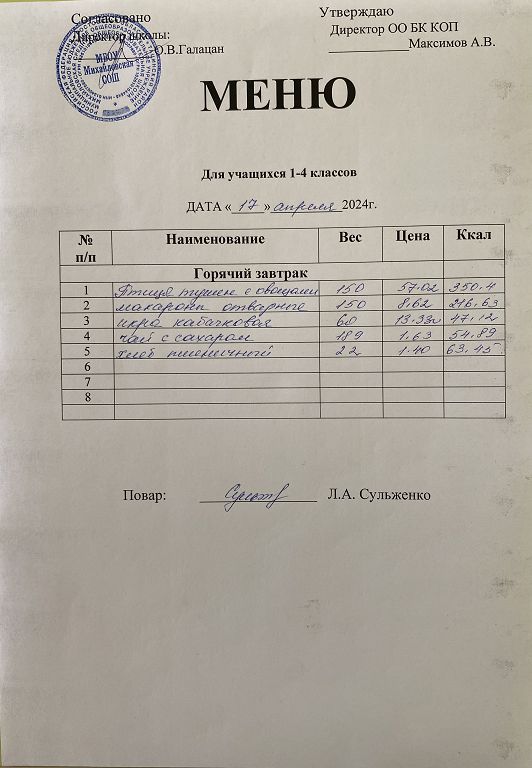 Согласовано
Утверждаю
Директор школы:
Директор ОО БК КОП
О.В.Галацан
Максимов А.В.
МБОУ
Михайловская
СОШ
МЕНЮ
Для учащихся 1-4 классов
ДАТА « 17 » апреля 2024г.
№ п/п Наименование Вес Цена Ккал
Горячий завтрак
1 Птица тушен с овощами 150 57.02 350.4
2 макароны отварные 150 8,62 216,63
3 икра кабачковая 60 13.33 47,12
4 чай с сахаром 189 1,63 54,89
5 хлеб пшеничный 22 1.40 63,45
6
7
8
Повар: Л.А. Сульженко